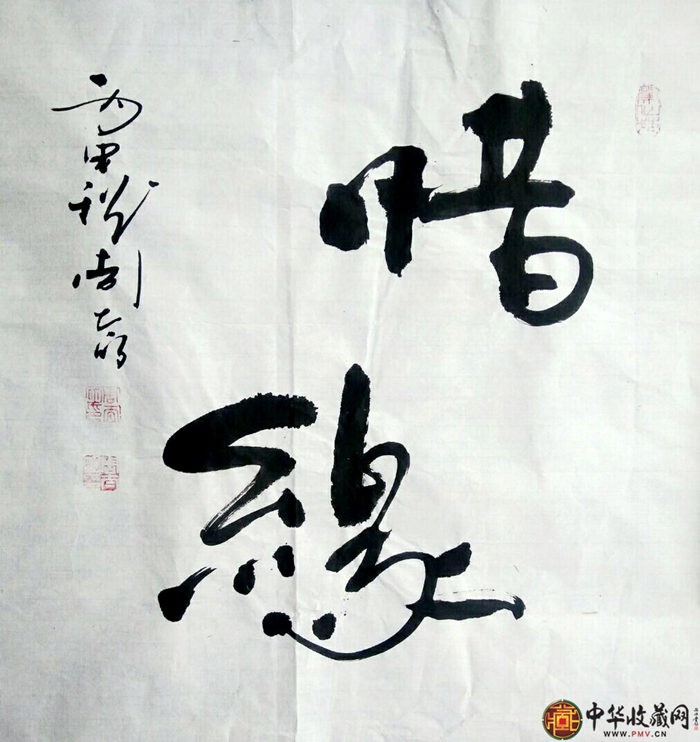 惜
緣
丙申秋周
中华收藏网
WWW.PMV.CN